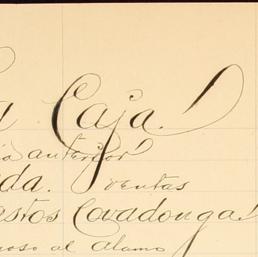 Caja!
anterior
da. ventas
estos Covadonga!
oso al Alamo